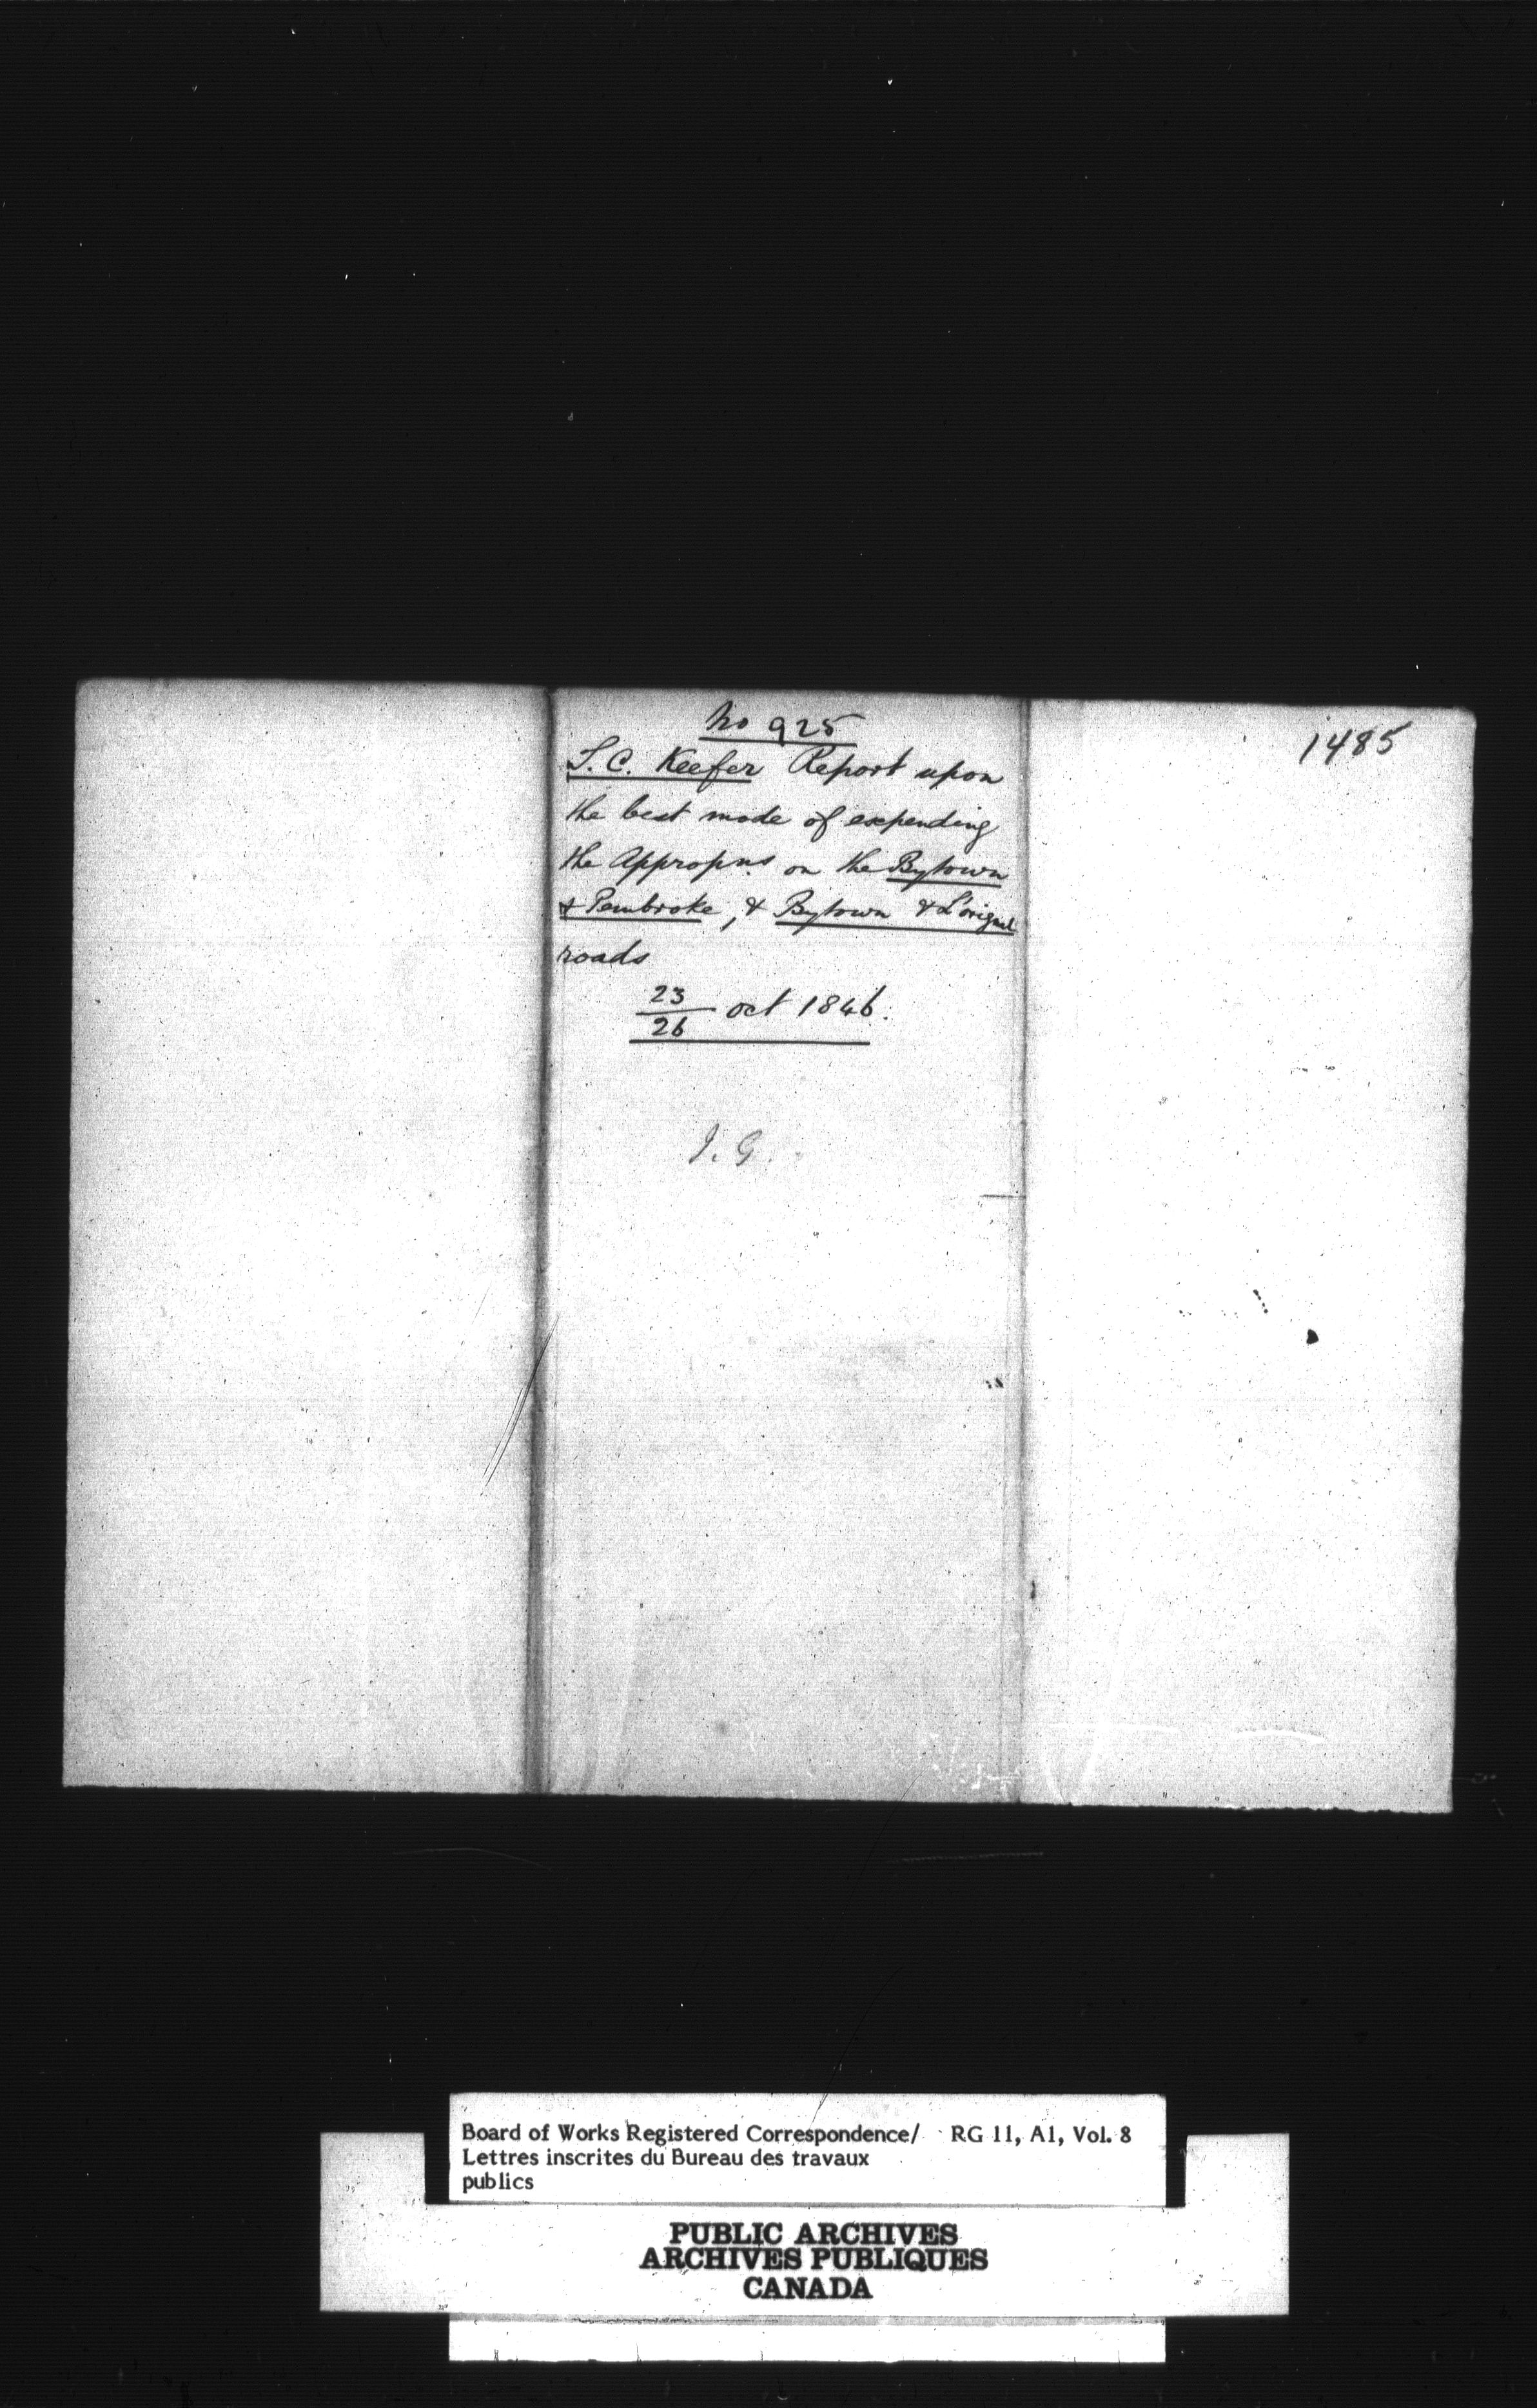 No 925
T. C. Keefer Report upon
the best mode of expending
the Appropns on the Bytown
& Pembroke, & Bytown & L'orignal
roads
23
26 oct 1846.
J. G.
1485
Board of Works Registered Correspondence/ RG 11, A1, Vol. 8
Lettres inscrites du Bureau des travaux
publics
PUBLIC ARCHIVES
ARCHIVES PUBLIQUES
CANADA